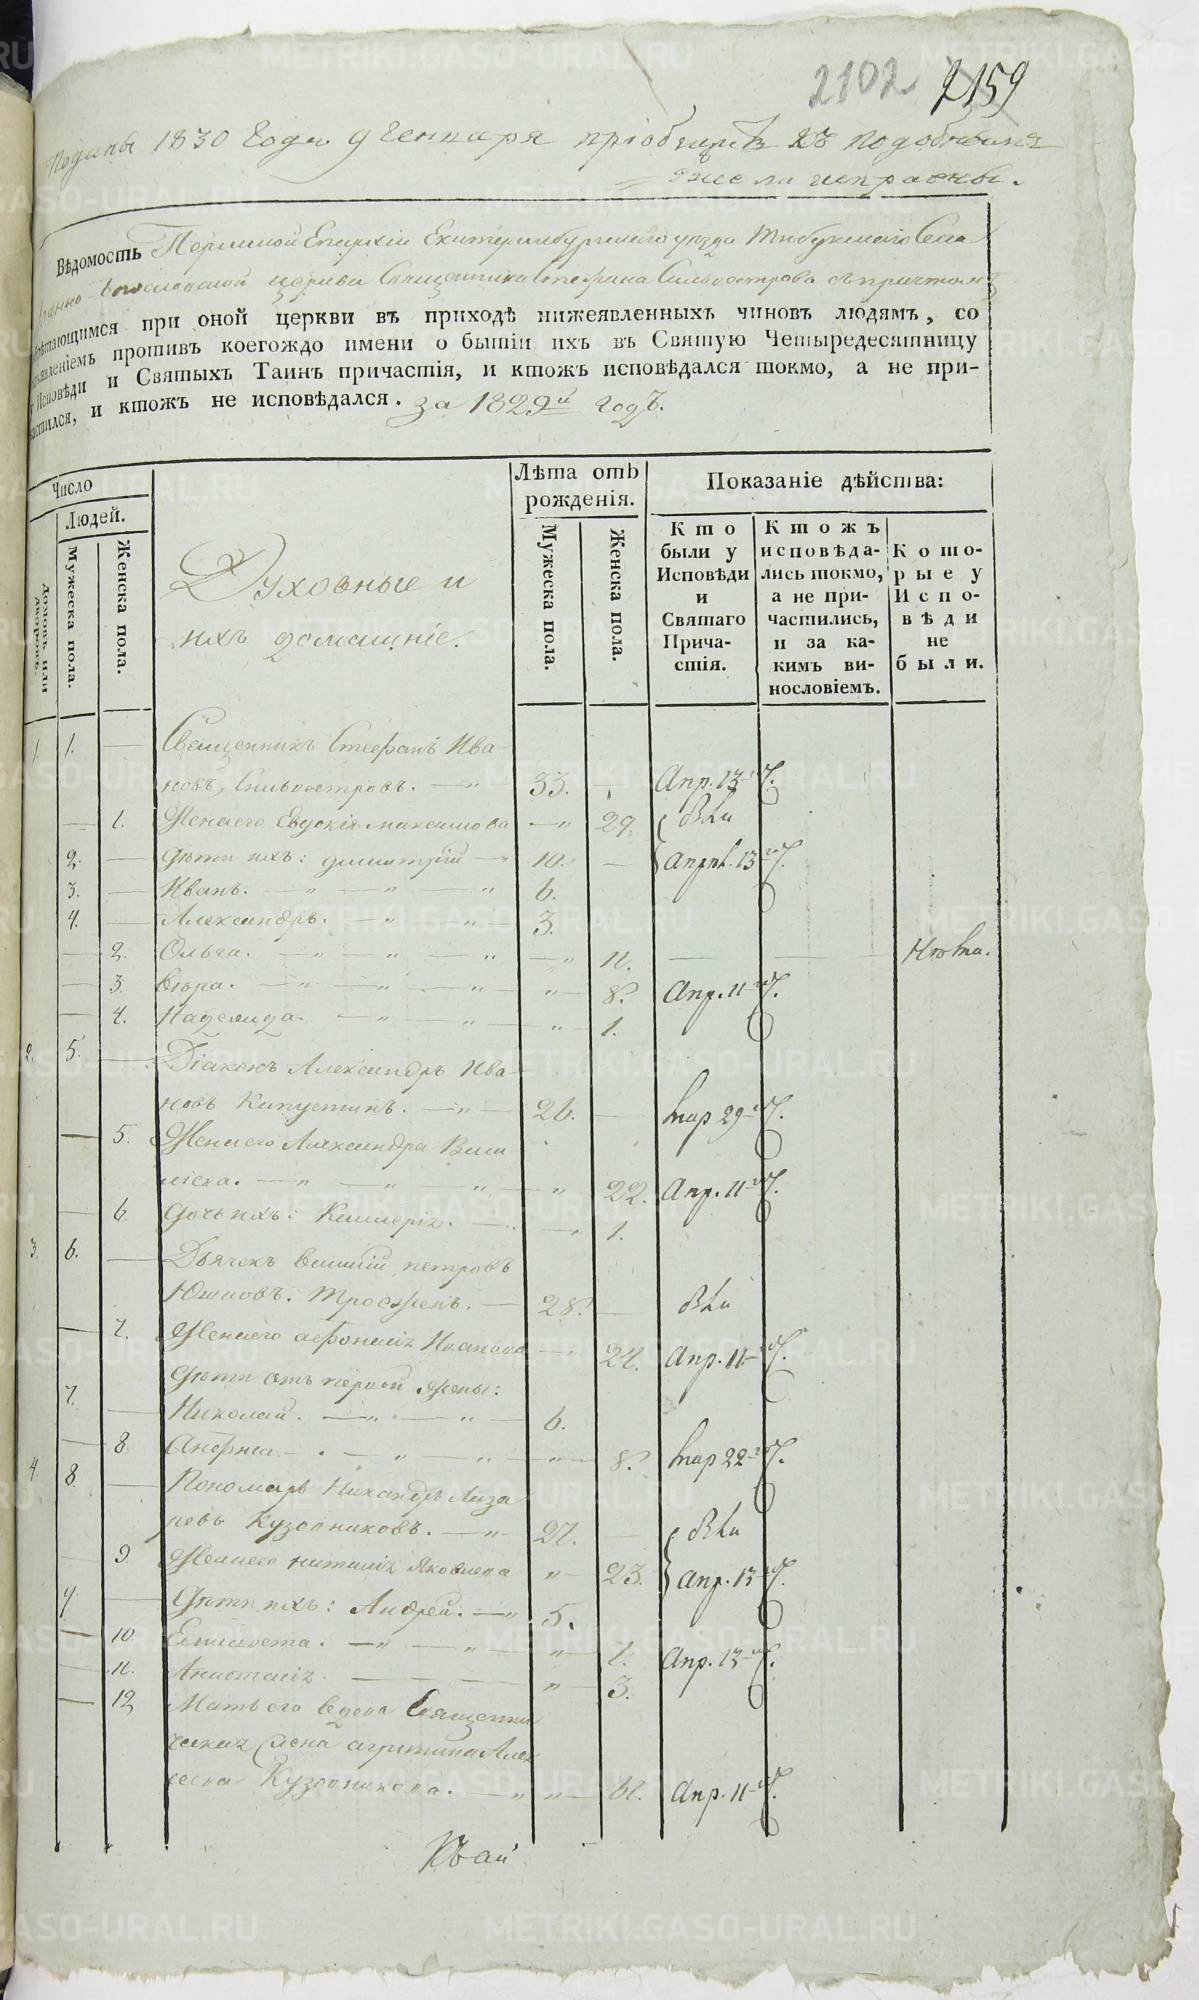 2102 2159
Поданы 1830 Года 9 Генваря пріобщить къ подобнымъ
ежели исправны.
Вѣдомость Пермской Епархіи Екатеринбургскаго уѣзда Села
Богословской церкви Священника Стефана Сильвестрова съ причтомъ
обрѣтающимся при оной церкви въ приходѣ нижеявленныхъ чиновъ людямъ, со
изъявленіемъ противъ коегождо имени о бытіи ихъ въ Святую Четыредесятницу
у Исповѣди и Святыхъ Таинъ причастія, и ктожъ исповѣдался токмо, а не при-
частился, и ктожъ не исповѣдался. за 1829й Годъ.
Число
Людей.
Домовъ или дворовъ.
Мужеска пола.
Женска пола.
Духовные и
ихъ домашніе.
Лѣта отъ
рожденія.
Мужеска пола.
Женска пола.
Показаніе дѣйства:
Кто
были у
Исповѣди
и
Святаго
Прича-
стія.
Ктожъ
исповѣда-
лись токмо,
а не при-
частились,
и за ка-
кимъ ви-
нословіемъ.
Кото-
рые у
Испо-
вѣди
не
были.
1. 1. — Священникъ Стефанъ Ива-
новъ, Сильвестровъ. — " — 33. — Апр. 13
— 1. Жена его Евдокія Максимова — " 29.
2. — Дѣти ихъ: Димитрій — " 10. — Апрл. 13
3. — Иванъ. — " — " — " 6.
4. — Александръ. — " — " 3.
— 2. Ольга. — " — " — " — " 11. — —
— 3. Вѣра. — " — " — " — " — 8. Апр. 11
— 4. Надежда. — " — " — " — 1.
2. 5. — Діаконъ Александръ Ива-
новъ Капустинъ. — " — 26. — Мар 29
— 5. Жена его Александра Васи
ліева. — " — " — " — " 22. Апр. 11
— 6. Дочь ихъ: Валерія. — " — " 1.
3. 6. — Дьячекъ Василій Петровъ
Юшковъ. — 28. —
— 7. Жена его Афонасія Иванова — " 24. Апр. 11
Дѣти отъ первой жены:
7. — Николай. — " — " — 6.
— 8. Анфиса — " — " — " — " — 8. Мар 22
4. 8. — Пономарь Никандръ Лаза
ревъ Кузовниковъ. — " — 27. —
— 9. Жена его Наталія Яковлева " — 23. Апр. 13
9. — Дѣти ихъ: Андрей. — " 5.
— 10. Елисавета. — " — " — " — 7. Апр. 13
— 11. Анастасія. — " — 3.
— 12 Мать его вдова Священни
ческая жена Агрипина Алек
сеева Кузовникова. — " " — 61. Апр. 11